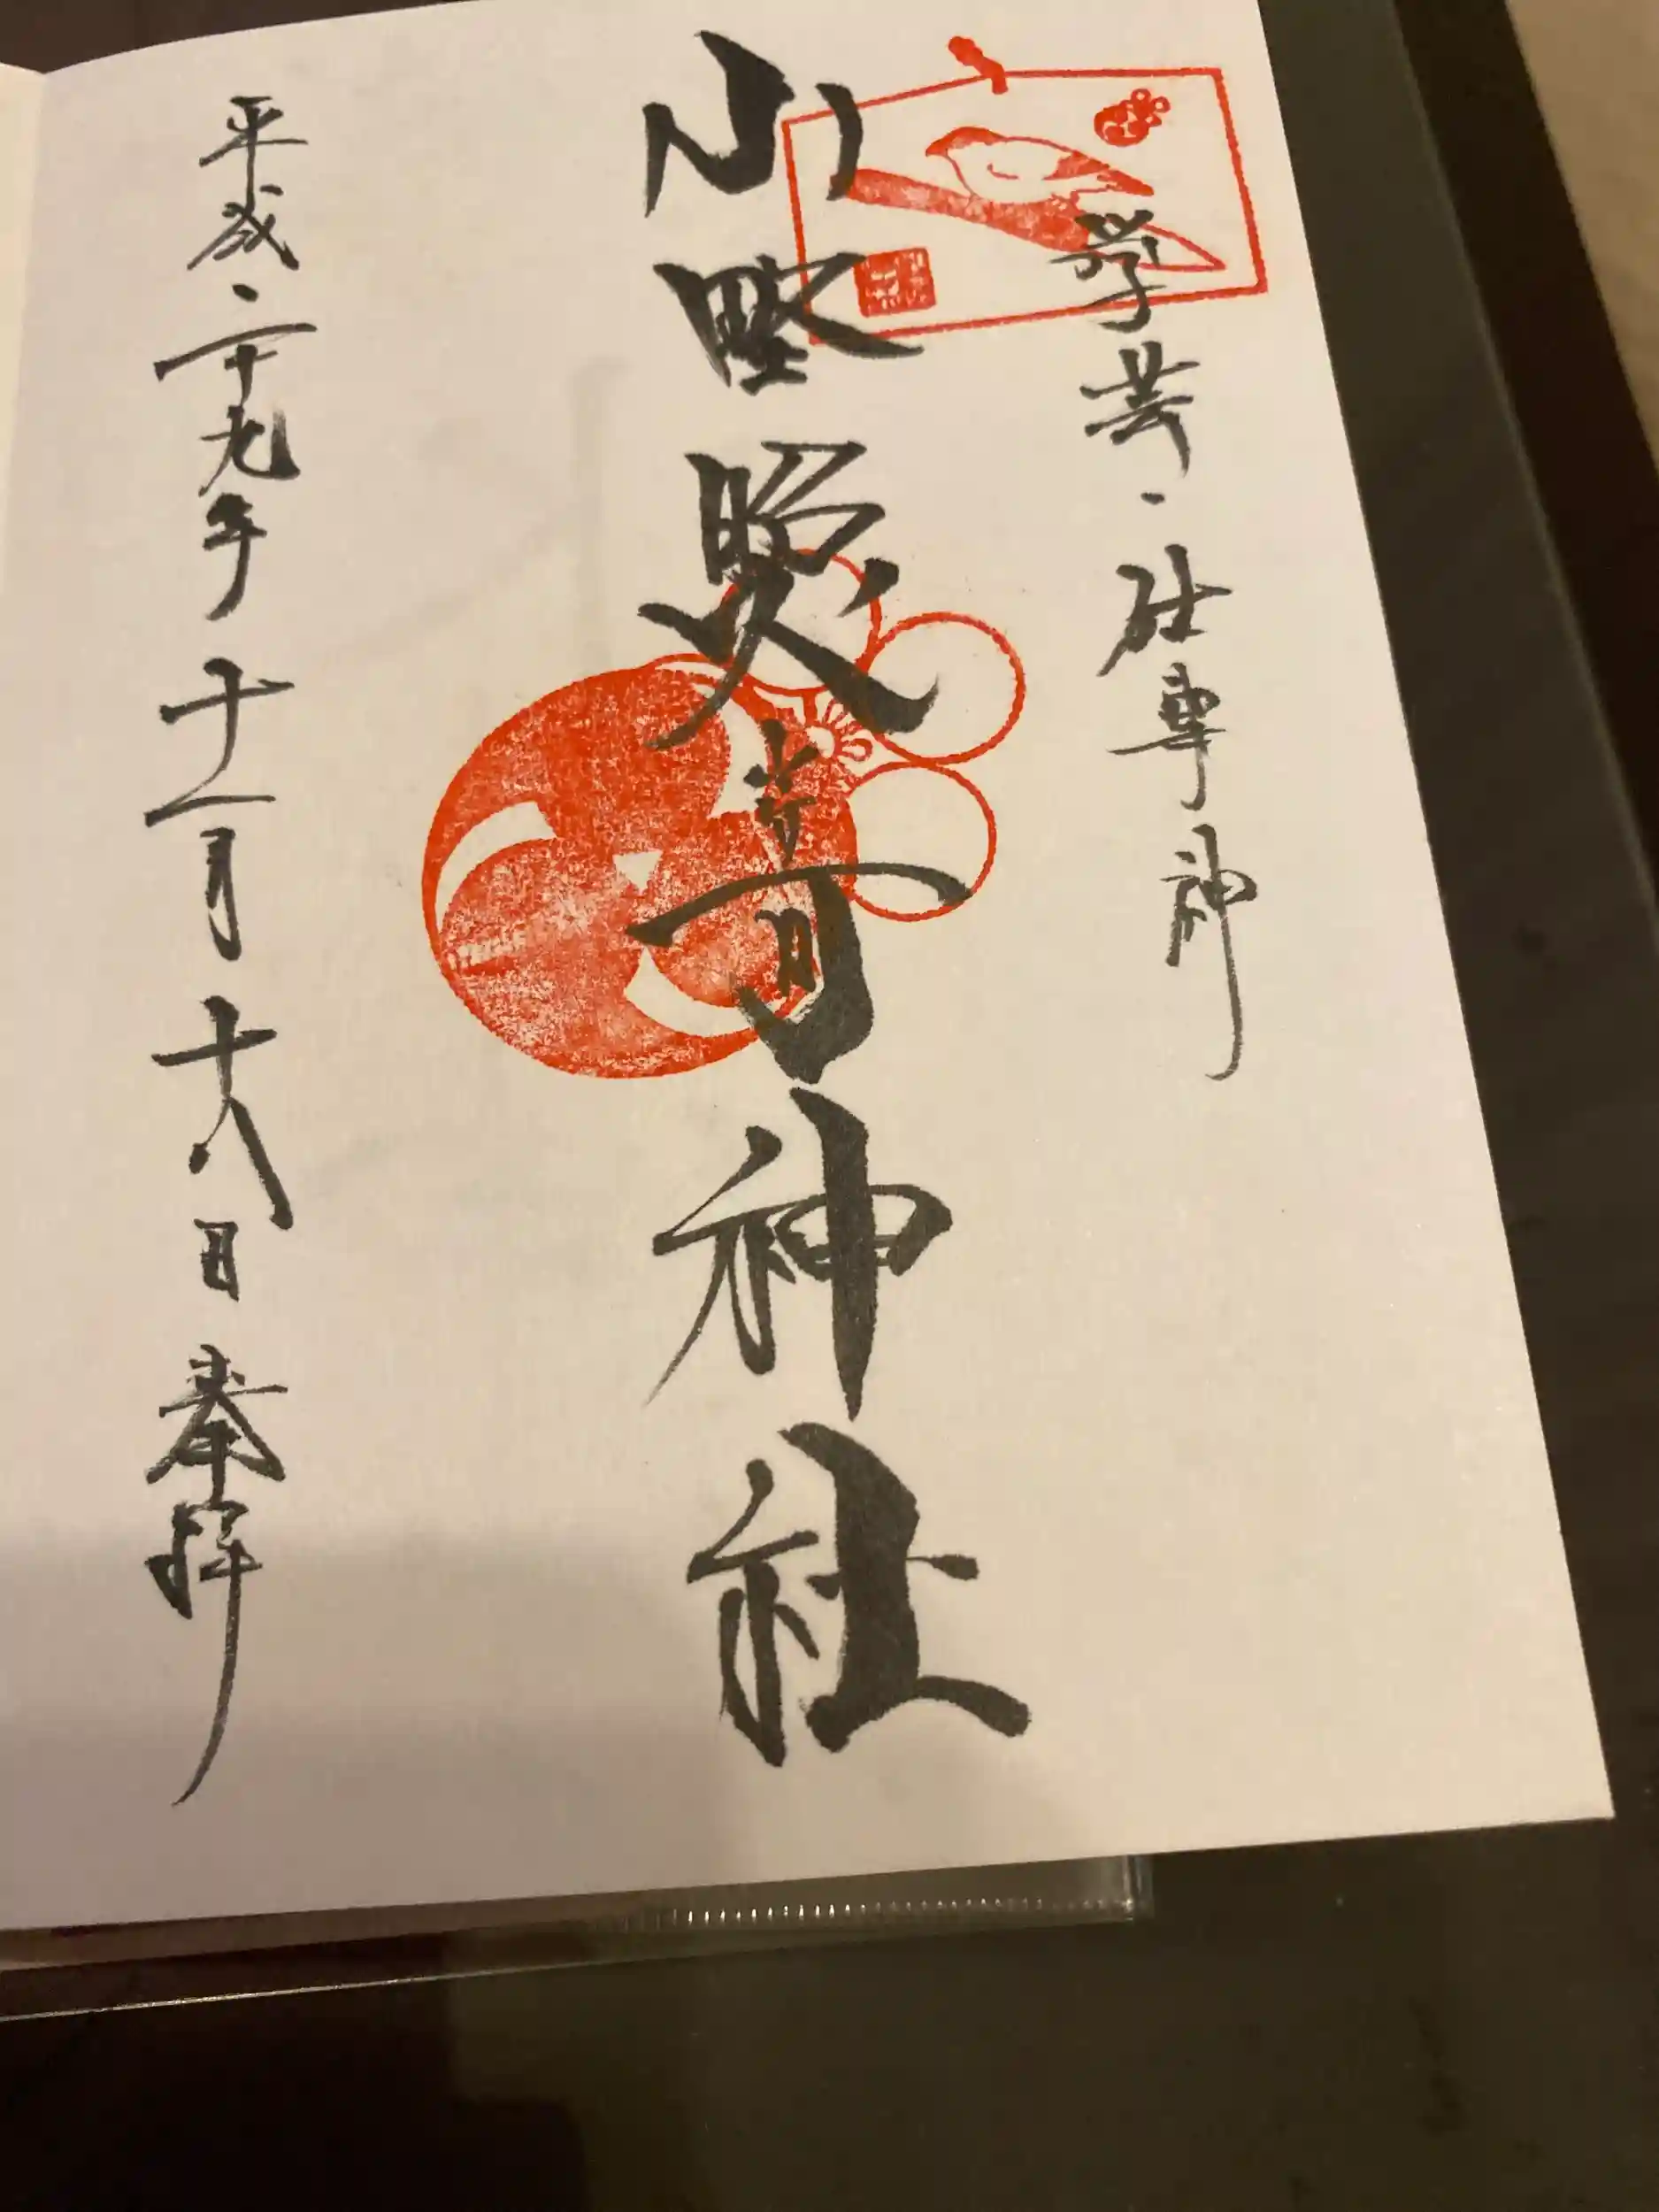 学芸・仕事神
小野照崎神社
平成二十九年十一月十八日奉拝